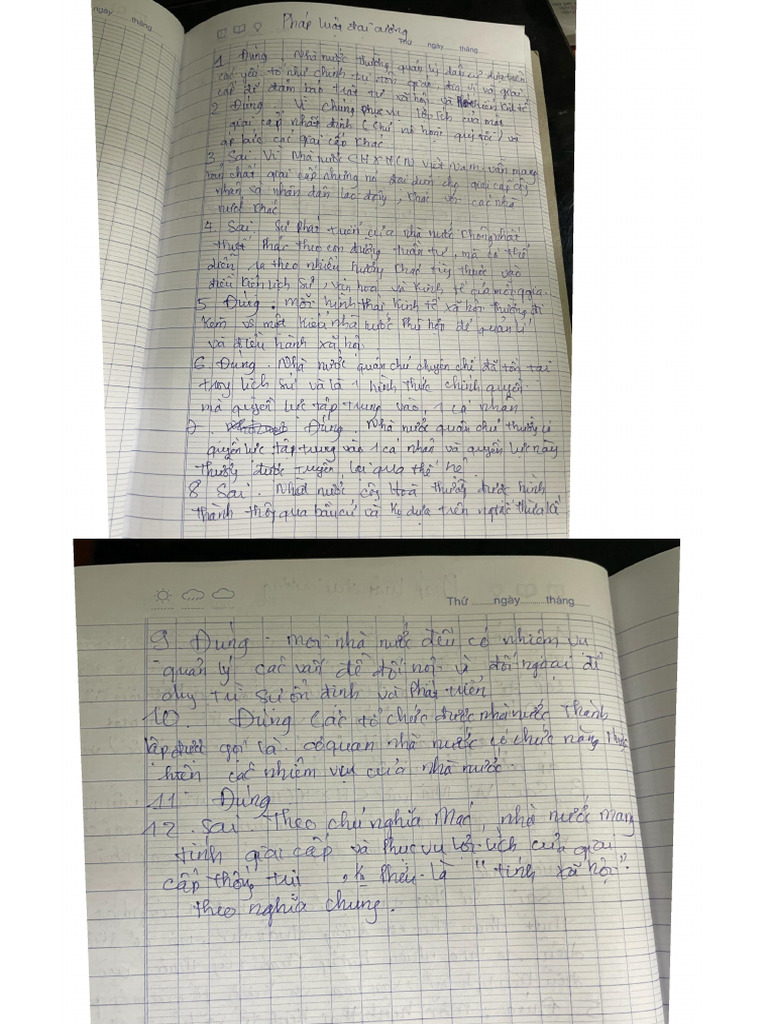 ngày tháng
Pháp luật đại cương
Thứ ngày tháng
1 Đúng. Nhà nước thường quản lý dân cư dựa trên
các yếu tố như chính trị, tôn giáo, đơn vị và giai
cấp để đảm bảo trật tự xã hội và
2 Đúng. Vì chúng phục vụ lợi ích của một
giai cấp nhất định (chủ nô hoặc quý tộc) và
áp bức các giai cấp khác
3. Sai. Vì Nhà nước CHXHCN Việt Nam vẫn mang
bản chất giai cấp nhưng nó đại diện cho giai cấp công
nhân và nhân dân lao động, khác với các nhà
nước khác
4. Sai. Sự phát triển của nhà nước không nhất
thiết phải theo con đường tuần tự, mà có thể
diễn ra theo nhiều hướng khác tùy thuộc vào
điều kiện lịch sử, văn hoá và kinh tế của mỗi q gia.
5 Đúng. mỗi hình thái kinh tế xã hội thường đi
kèm với một kiểu nhà nước phù hợp để quản lí
và điều hành xã hội.
6. Đúng. Nhà nước quân chủ chuyên chế đã tồn tại
trong lịch sử và là 1 hình thức chính quyền
mà quyền lực tập trung vào 1 cá nhân
7 Đúng. Nhà nước quân chủ thường có
quyền lực tập trung vào 1 cá nhân và quyền lực này
thường được truyền lại qua thế hệ.
8 Sai. Nhà nước cộng hoà thường được hình
thành thông qua bầu cử và ko dựa trên ng tắc thừa kế
Thứ ngày tháng
9. Đúng. mọi nhà nước đều có nhiệm vụ
quản lý các vấn đề đối nội và đối ngoại để
duy trì sự ổn định và phát triển
10. Đúng Các tổ chức được nhà nước thành
lập được gọi là cơ quan nhà nước có chức năng thực
hiện các nhiệm vụ của nhà nước.
11 Đúng
12. Sai. Theo chủ nghĩa Mác, nhà nước mang
tính giai cấp và phục vụ lợi ích của giai
cấp thống trị, k phải là "tính xã hội"
theo nghĩa chung.